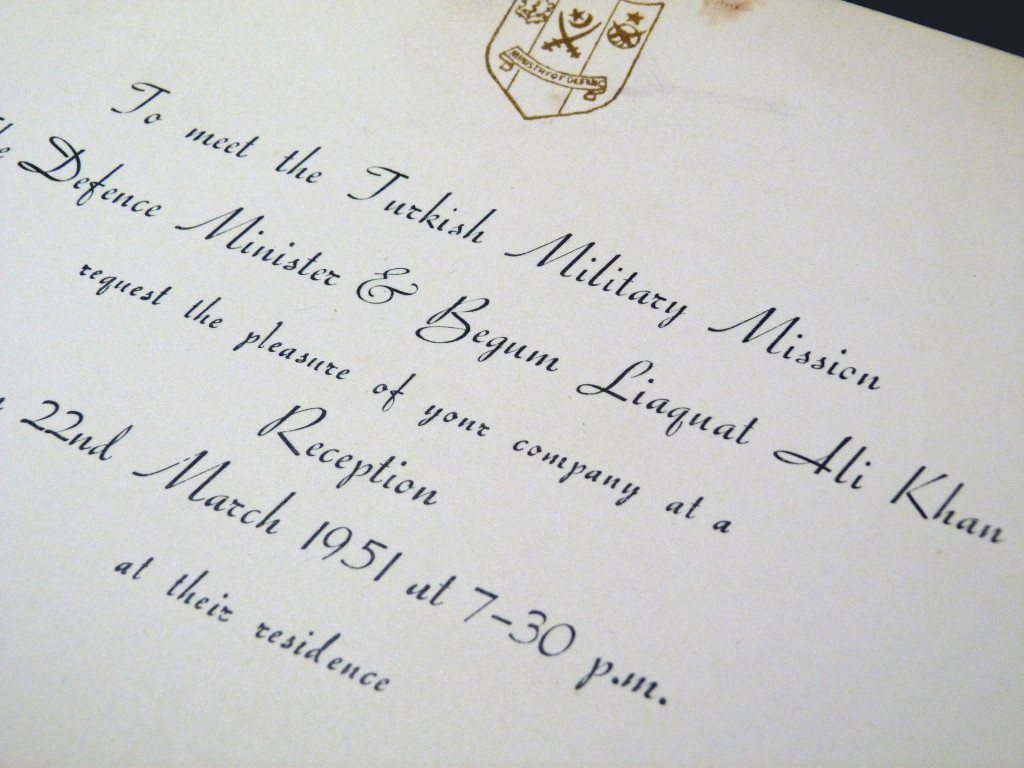 MINISTRY OF DEFENCE
To meet the Turkish Military Mission
Defence Minister & Begum Liaquat Ali Khan
request the pleasure of your company at a
Reception
22nd March 1951 at 7-30 p.m.
at their residence